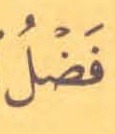 فَضْلُ